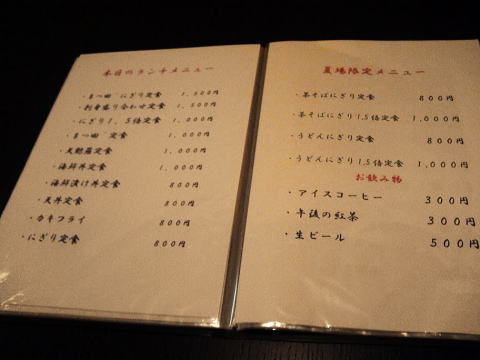 本日のランチメニュー
・まつ田にぎり定食 1,500円
・刺身盛り合わせ定食 1,500円
・にぎり1,5倍定食 1,000円
・まつ田定食 1,000円
・天麩羅定食 1,000円
・海鮮丼定食 1,000円
・海鮮漬け丼定食 800円
・天丼定食 800円
・カキフライ 800円
・にぎり定食 800円
夏場限定メニュー
・茶そばにぎり定食 800円
・茶そばにぎり1,5倍定食 1,000円
・うどんにぎり定食 800円
・うどんにぎり1,5倍定食 1,000円
お飲み物
・アイスコーヒー 300円
・午後の紅茶 300円
・生ビール 500円